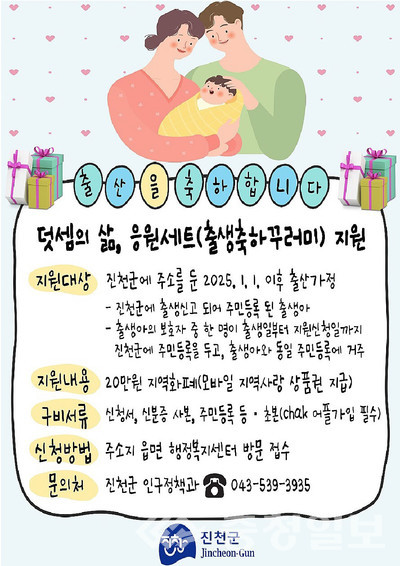 출산을축하합니다
덧셈의 삶, 응원세트(출생축하꾸러미) 지원
지원대상 진천군에 주소를 둔 2025. 1. 1. 이후 출산가정
- 진천군에 출생신고 되어 주민등록 된 출생아
- 출생아의 보호자 중 한 명이 출생일부터 지원신청일까지
진천군에 주민등록을 두고, 출생아와 동일 주민등록에 거주
지원내용 20만원 지역화폐(모바일 지역사랑 상품권 지급)
구비서류 신청서, 신분증 사본, 주민등록 등·초본(chak 어플가입 필수)
신청방법 주소지 읍면 행정복지센터 방문 접수
문의처 진천군 인구정책과 ☎ 043-539-3935
진천군
Jincheon-Gun
충청일보